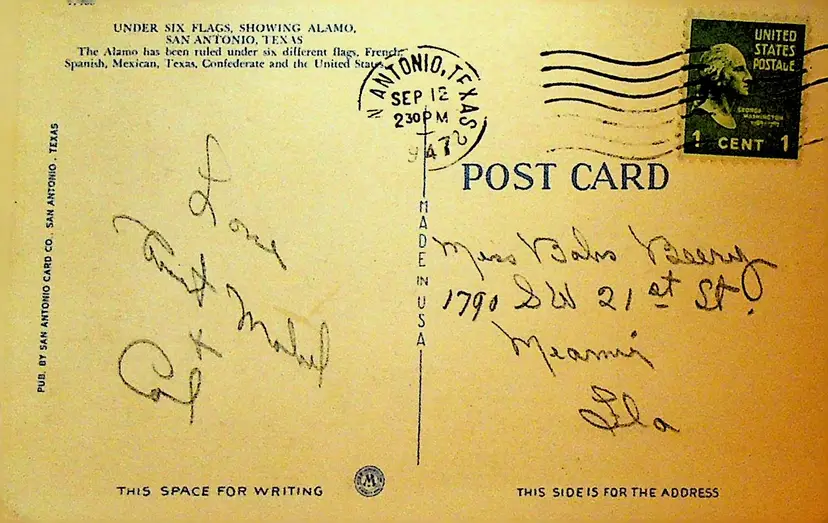 UNDER SIX FLAGS, SHOWING ALAMO,
SAN ANTONIO, TEXAS
The Alamo has been ruled under six different flags, French,
Spanish, Mexican, Texas, Confederate and the United States.
PUB. BY SAN ANTONIO CARD CO., SAN ANTONIO, TEXAS
Love
Aunt Mabel
&
THIS SPACE FOR WRITING
N ANTONIO, TEXAS
SEP 12
230 PM
947
MADE IN USA
UNITED
STATES
POSTAGE
GEORGE
WASHINGTON
1 CENT 1
POST CARD
Miss Babs Beery
1790 SW 21st St.
Meamii
Fla
THIS SIDE IS FOR THE ADDRESS